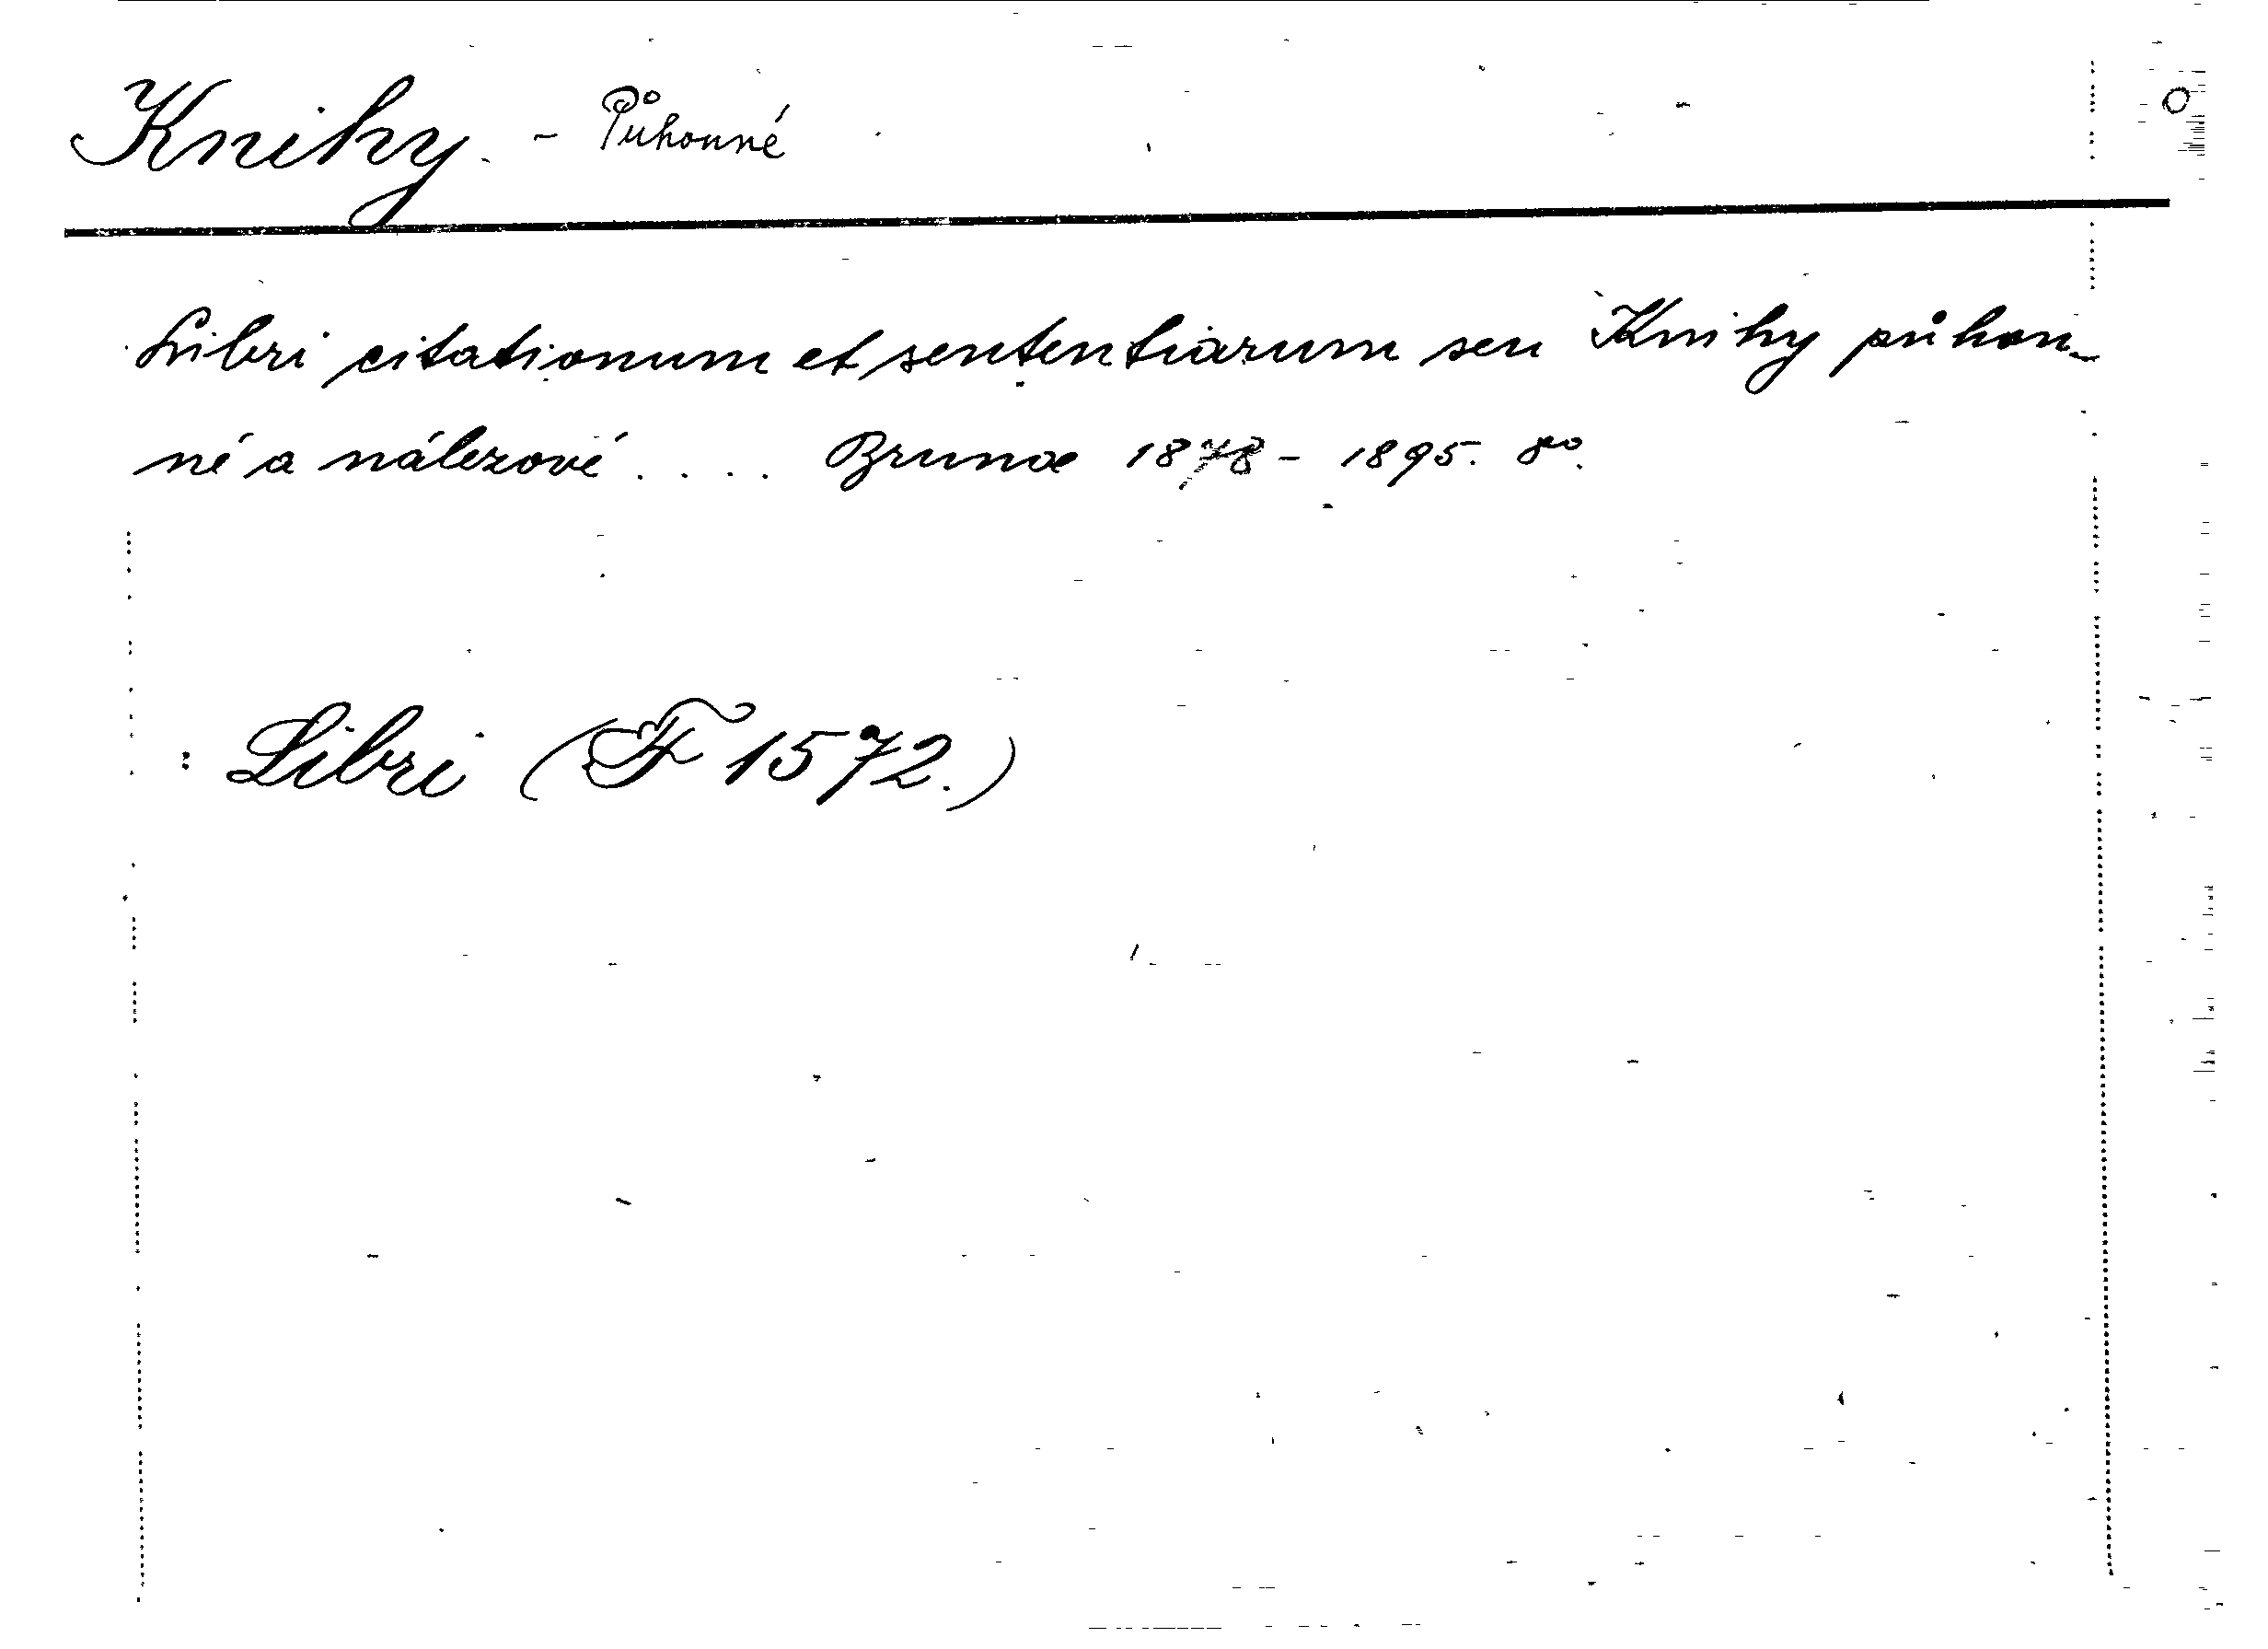 Knihy. - Půhonné
Libri citationum et sententiarum seu Knihy půhon-
né a nálezové.... Brunae 1878-1895. 8º.
: Libri (F 1572.)